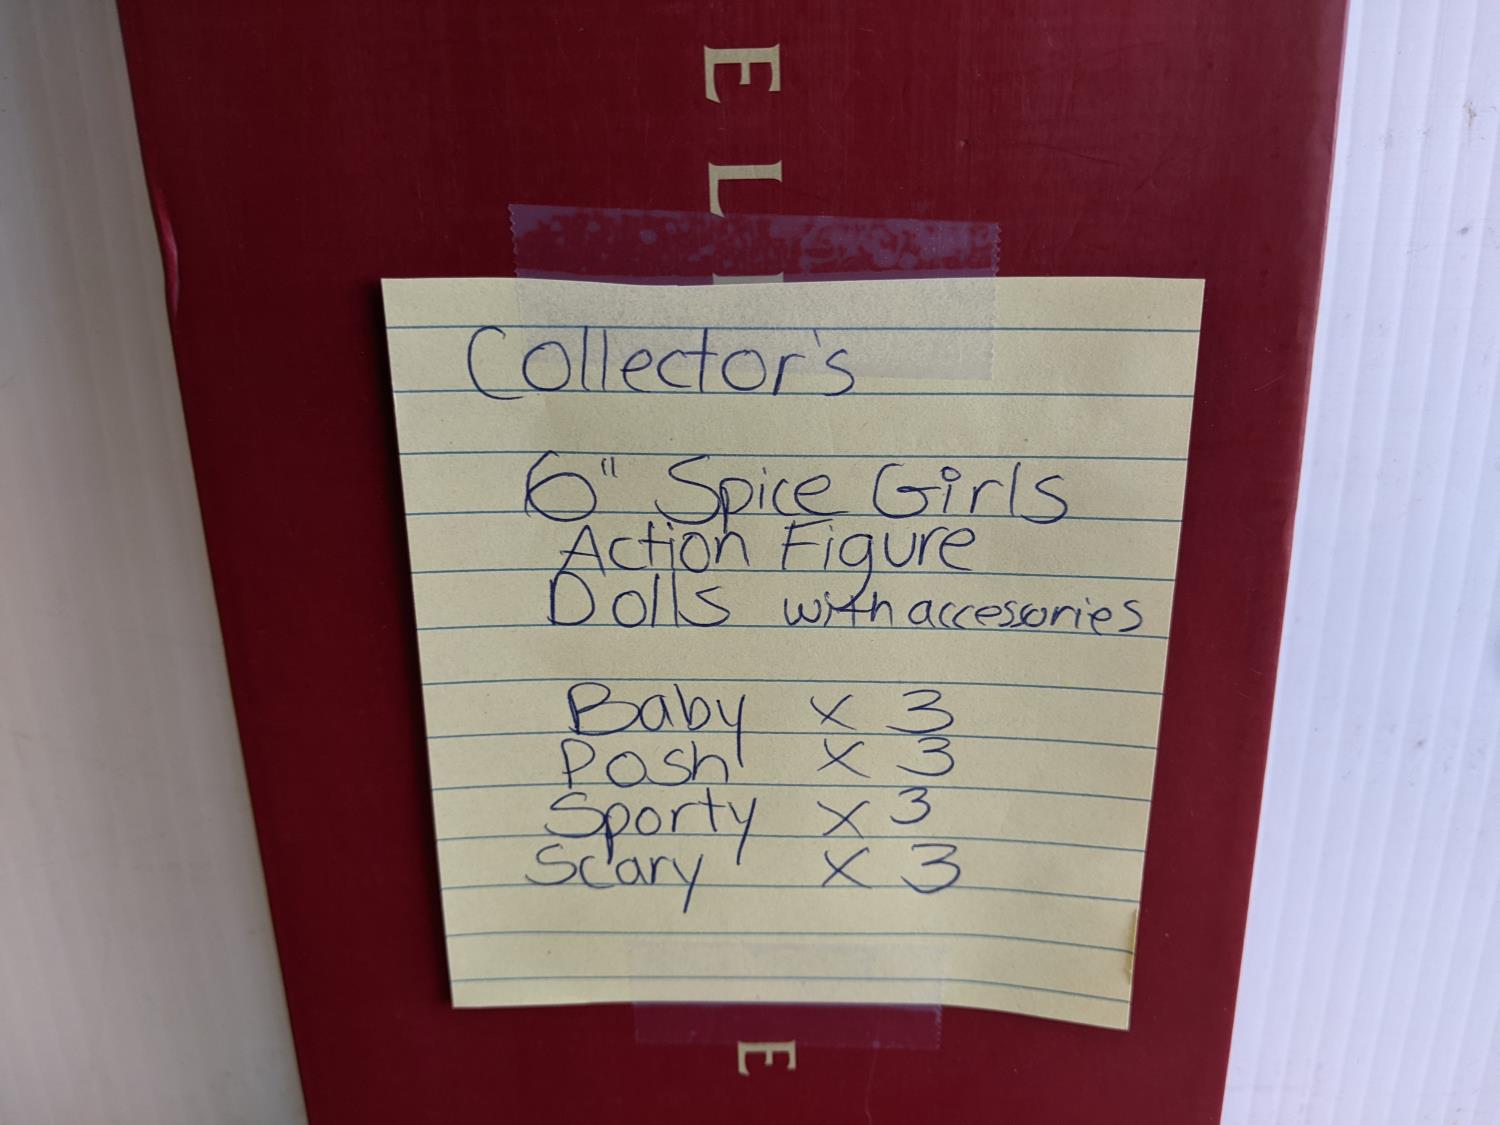 E L
Collector's
6" Spice Girls
Action Figure
Dolls with accessories
Baby x 3
Posh x 3
Sporty x 3
Scary x 3
E